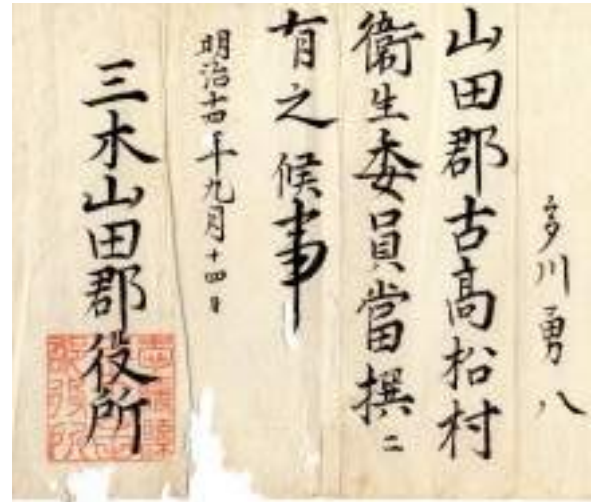 多川勇八
山田郡古高松村
衞生委員當撰ニ
有之候事
明治十四年九月十四日
三木山田郡役所